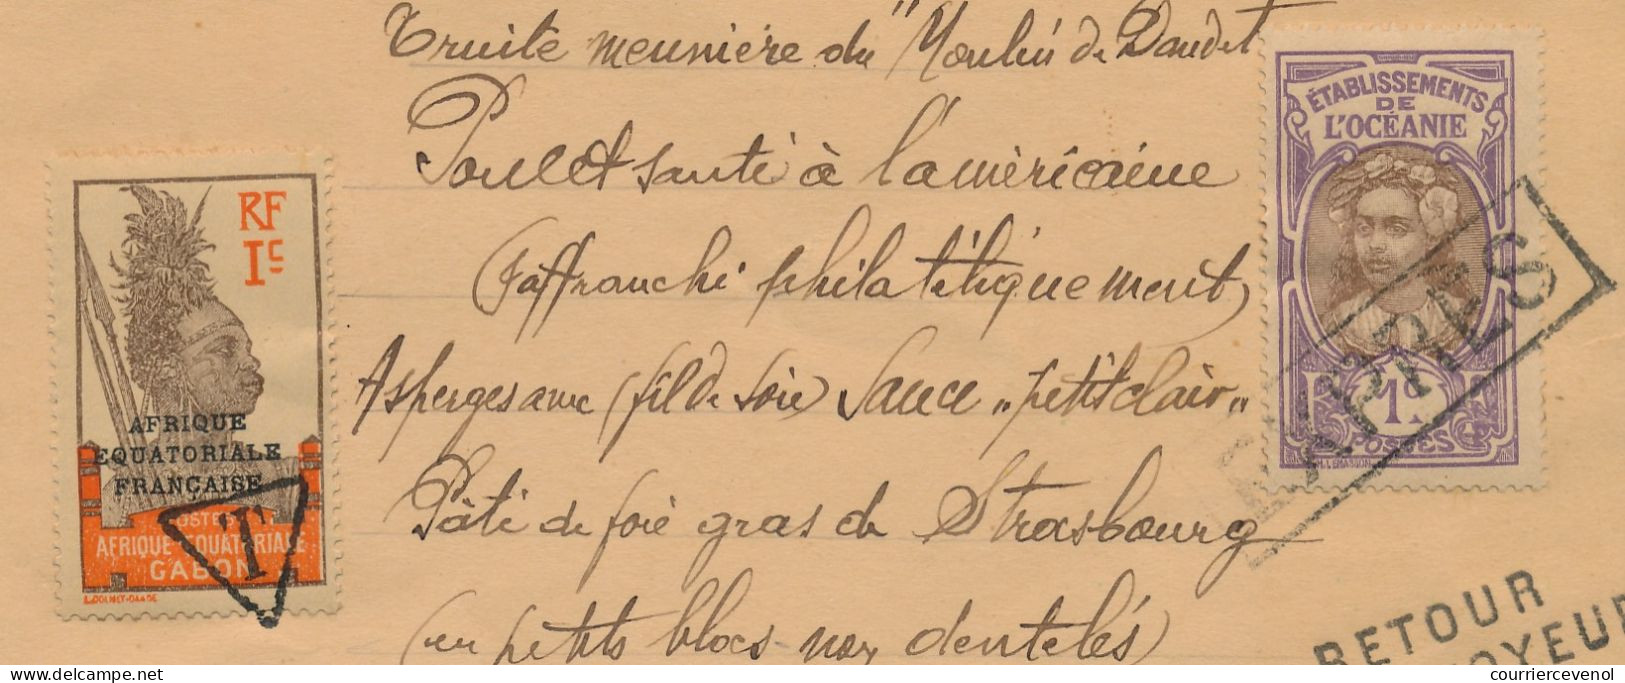 Truite meunière du "Moulin de Daudet
Poulet santé à l'américaine
(affranchi philatéliquement)
Asperges avec (fil de soie) Sauce "petit clair"
Pâté de foie gras de Strasbourg
(en petits blocs non dentelés)
RF
1c
AFRIQUE
EQUATORIALE
FRANÇAISE
POSTES
AFRIQUE-EQUATORIALE
GABON
T
ÉTABLISSEMENTS
DE
L'OCÉANIE
1c
POSTES
RETOUR
courriercevenol